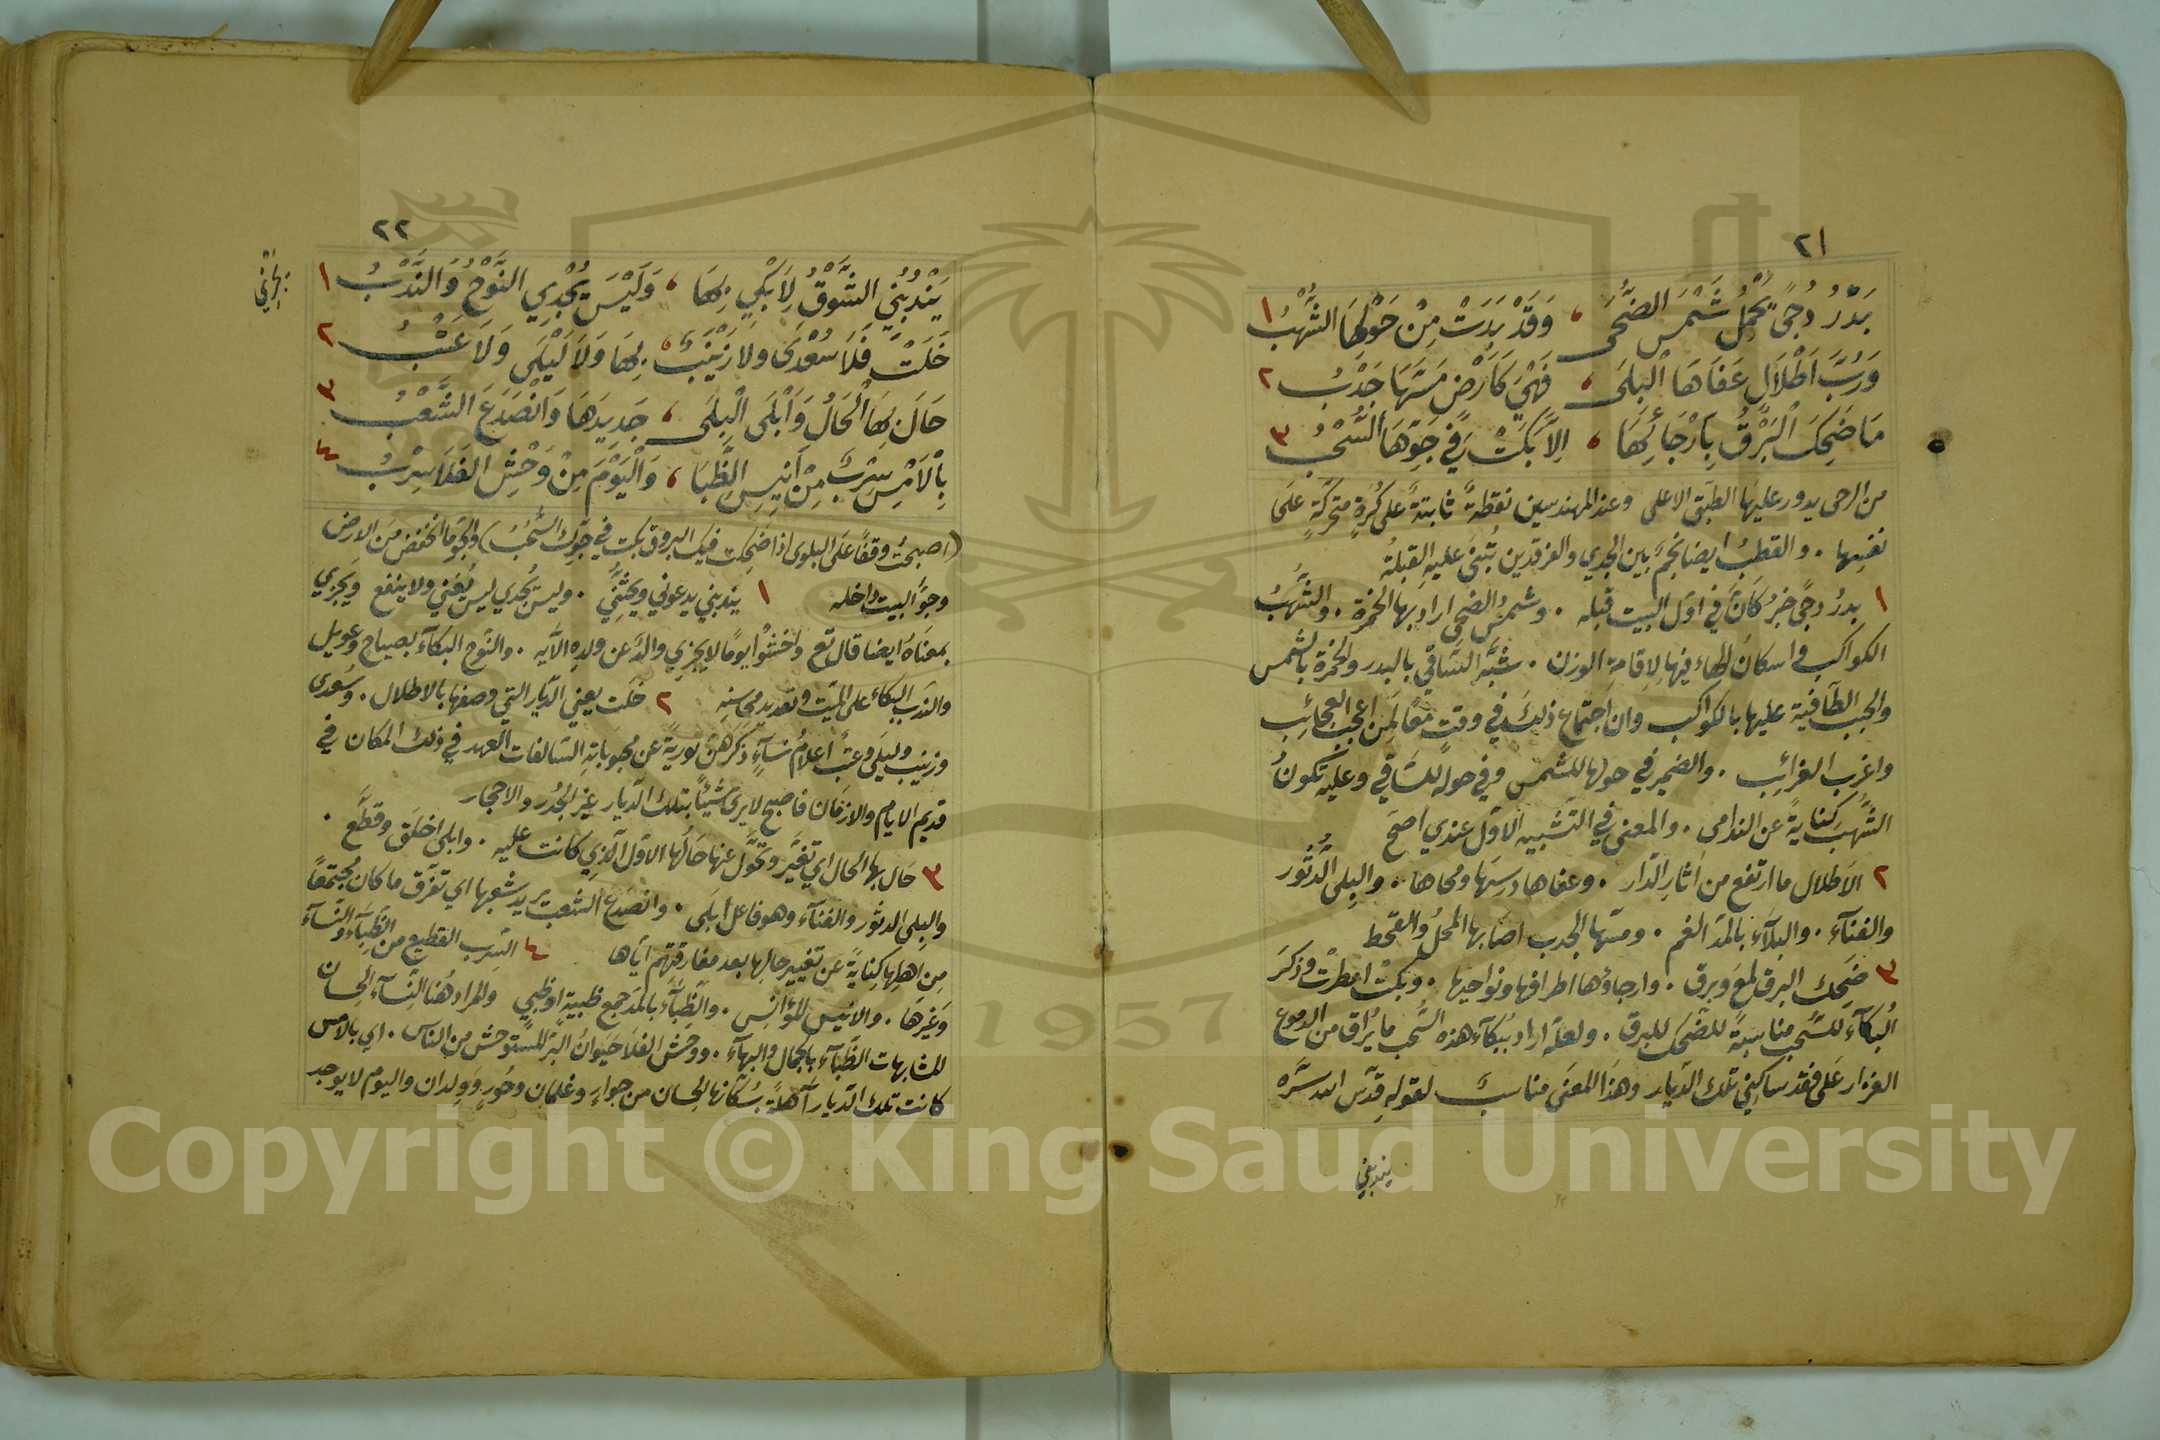 ٢١
بَدْرُ دُجًى يَحْمِلُ شَمْسَ الضُّحَى ، وَقَدْ بَدَتْ مِنْ حَوْلِهَا الشُّهْبُ ١
وَرُبَّ اَطْلَالٍ عَفَاهَا الْبِلَى ، فَهْيَ كَاَرْضٍ مَسَّهَا جَدْبُ ٢
مَا ضَحِكَ الْبَرْقُ بِاَرْجَائِهَا ، اِلَّا بَكَتْ فِي جَوِّهَا السُّحْبُ ٣
من الرحى يدور عليها الطبق الاعلى وعند المهندسين نقطةً ثابتةً على كُرَةٍ متحركَةٍ على
نفسِها . والقطبُ ايضا نجمٌ بين الجدي والفرقدين تُبنَى عليه القبلةُ
١ بدرُ دجًى خبرُ كَانَ في اوّل البيت قبله . وشمسُ الضحى اراد بها الخمرة . والشُّهبُ
الكواكب واسكانُ الهاء فيها لاقامةِ الوزن . شبَّه السَّاقي بالبدر والخمرة بالشمس
والحبب الطّافية عليها بالكواكب وان اجتماع ذلك في وقتٍ معًا لَمِن اعجب العجائِب
واغرب الغرائِب . والضمير في حولها للشمس وفي حوله للسّاقي وعليه تكونُ
الشُّهبُ كنايةً عن الندامى . والمعنى في التّشبيه الاوّل عندي اصحَ
٢ الاَطلال ما ارتفع من اثارِ الدّار . وعفاها درسَها ومحاها . والبِلى الدُّثُور
والفنآء . والبلآء بالمدّ الغم . ومسّها الجدب اصَابها المحلُ والقحط
٣ ضحِكَ البرق لمعَ وبرق . وارجاؤها اطرافها ونواحيها . وبكتْ امطرَتْ وذكرَ
البُكآءَ للسُّحب مناسبةً للضّحك للبرق . ولعلّه اراد ببُكآء هذه السُّحب ما يُراق من الدموع
الغزار عَلى فقد ساكِني تلك الدّيار وهذا المعنَى مناسبٌ لقوله قدّس الله سرَّه
يندبني
٢٢
يَنْدُبُنِي الشَّوْقُ لِاَبْكِي بِهَا ، وَلَيْسَ يُجْدِي النَّوْحُ وَالنَّدْبُ ١
خَلَتْ فَلَا سُعْدَى ولا زَيْنَبٌ ، بِهَا وَلَا لَيْلَى وَلَا عَتْبُ ٢
حَالَ بِهَا الْحَالُ وَاَبْلَى الْبِلَى ، جَدِيدَهَا وَانْصَدَعَ الشَّعْبُ ٣
بِالْاَمْسِ سِرْبٌ مِنْ اَنِيسِ الظِّبَا ، وَالْيَوْمَ مِنْ وَحْشِ الفَلَا سِرْبُ ٤
(اصبحتُ وقفًا على البلوى اذا ضحِكت فيك البروق بكت في جوّك السُّحُبُ) والجوّ ما انخفض من الارض
وجوّ البيت داخله ١ يندبني يدعوني ويحثّني . وليس يُجدي ليس يُغني ولا ينفع ويَجزي
بمعناهُ ايضا قال تع واخشوْا يومًا لا يجزي والدٌ عن ولدِه الاَيه . والنّوح البكآء بصياح وعويل
والندب البكاء على الميّت وتعديد محاسنِه ٢ خلت يعني الدّيار التي وصفها بالاطلال . وسعدى
وزينب وليلَى وعتبُ اعلامُ نسآءٍ ذكرهنّ توريةً عن محبوباتِهِ السّالفات العهد في ذلك المكان في
قديم الايام والازمَان فاصبح لا يرى شيئًا بتلك الدّيار غير الجُدُر والاحجار
٣ حَال بها الحال اي تغيّر وتحوّل عنها حَالُها الاوّل الّذي كانت عليه . وابلى اخلق وقطّع .
والبِلى الدثور والفنآء وهو فاعل ابلَى . وانصَدع الشعب يريد شعبها اي تفرّق ما كان مجتمعًا
مِن اهلِها كِنايَةً عن تغيير حالِها بعد مفارقتِهم ايّاها ٤ السِّرب القطيع من الظّبآء والنّسآء
وَغيرهَا . والانيس المؤانِس . والظِّبآء بالمدّ جمع ظبيةٍ او ظبي والمراد هُنا النِّسآء الحِسان
المشابهات الظّبآء بالجمال والبهآء . ووحش الفَلا حَيَوانُ البَرّ المستوحش من الناس . اي بالامس
كانت تلك الدّيار آهلةً بسُكّانها الحِسان من جوارٍ وغلمان وحُورٍ وَوِلدان واليوم لا يوجد
Copyright © King Saud University
1957